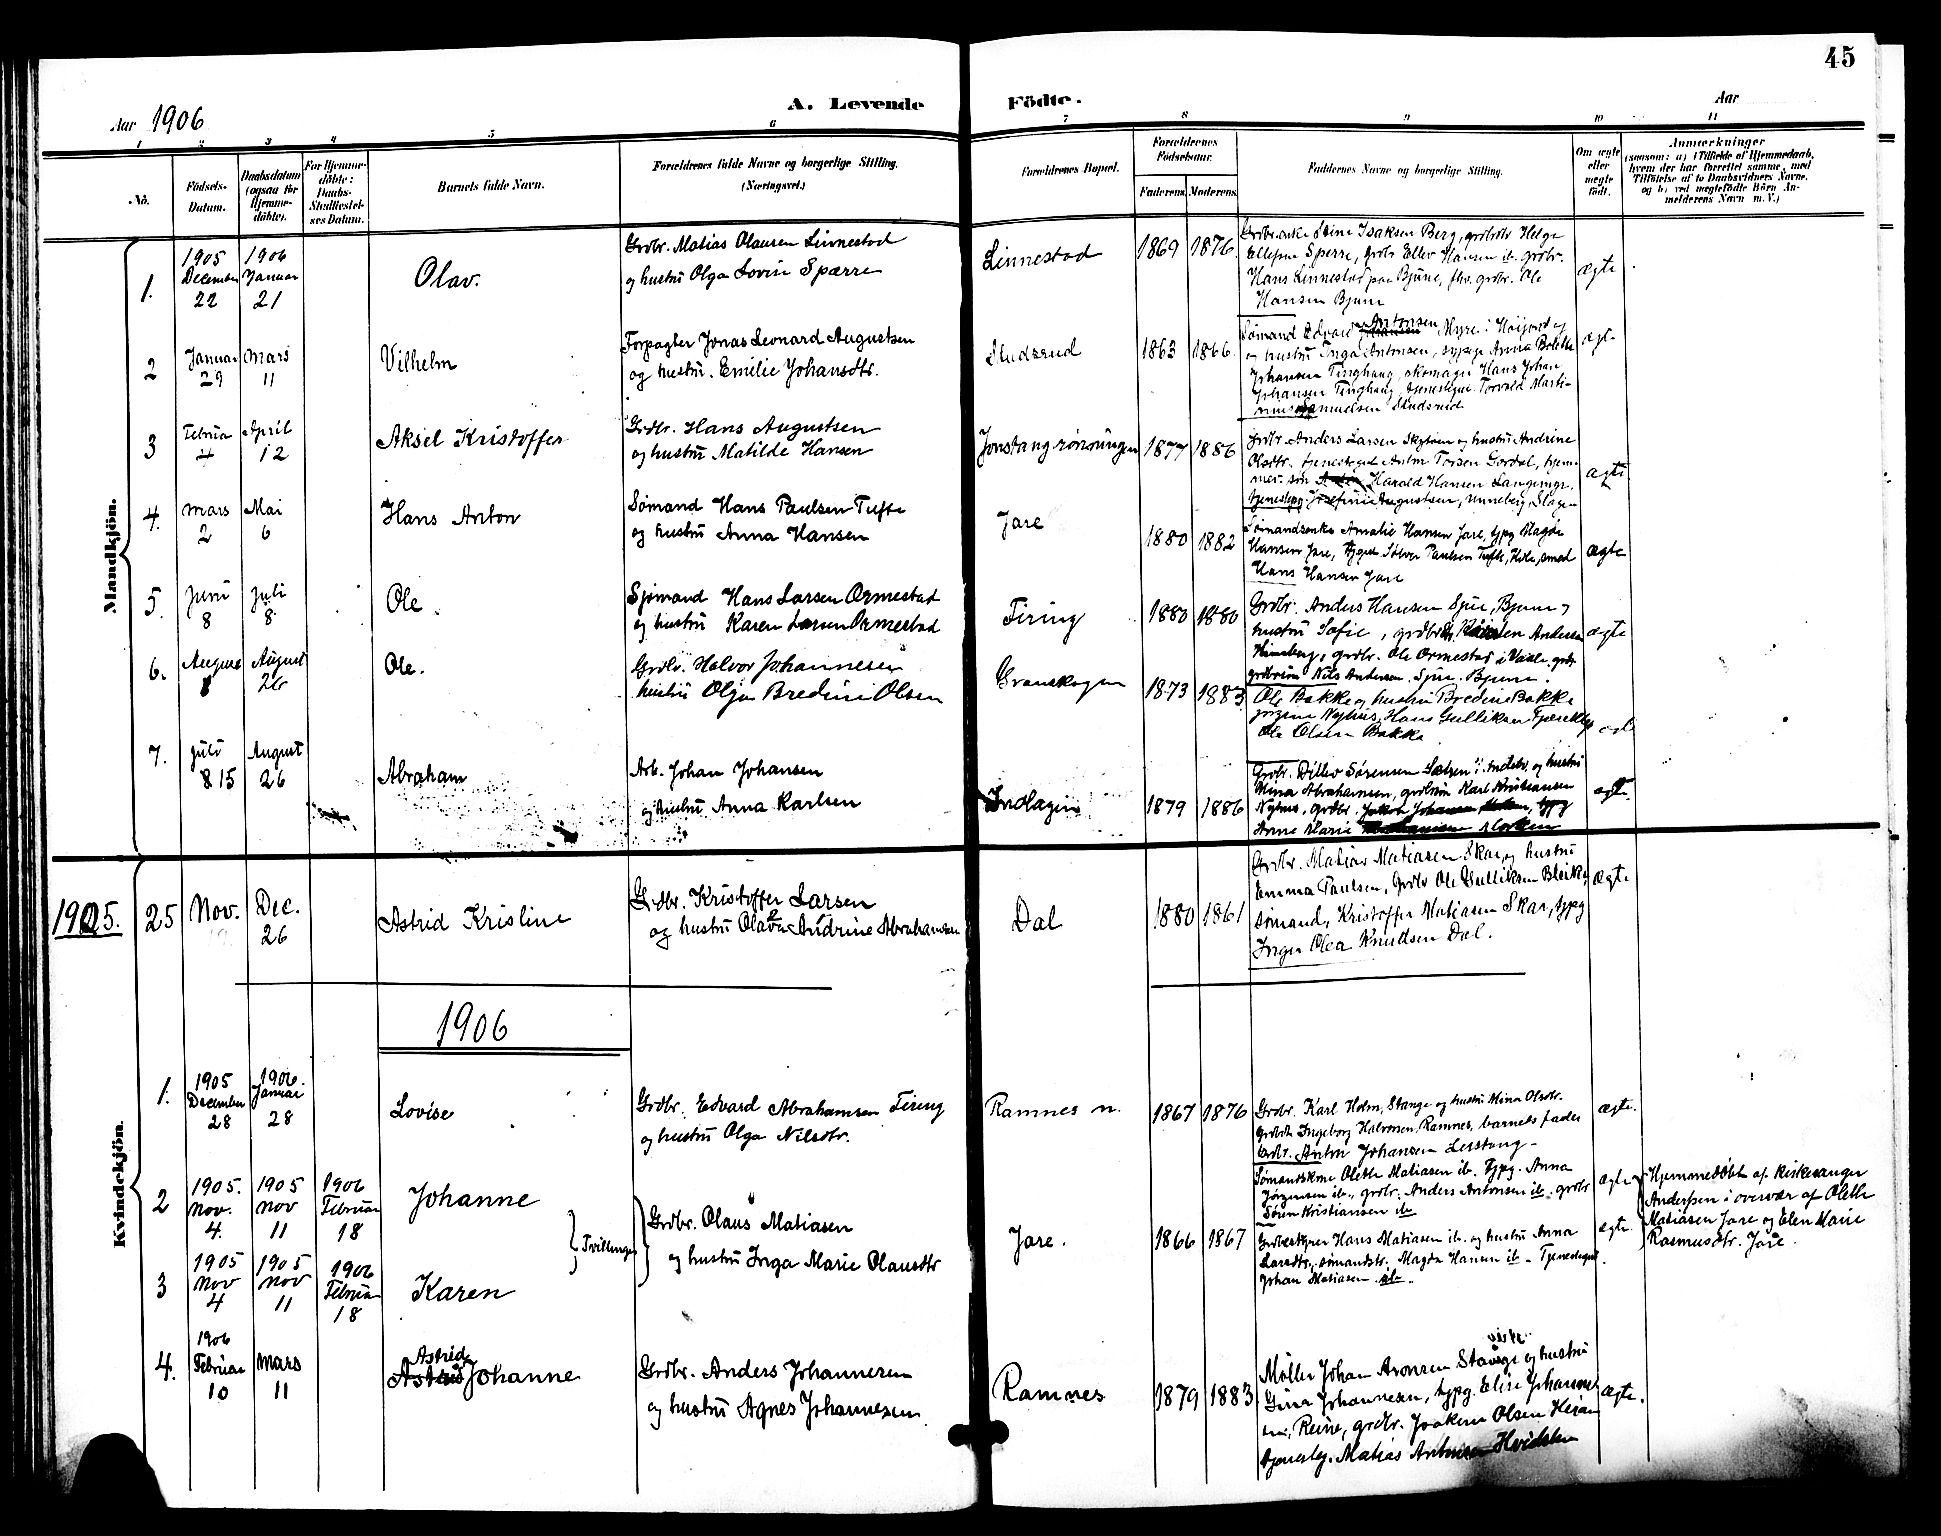 45
A. Levende Födte.
Aar 1906
Aar
1 2 3 4 5 6 7 8 9 10 11
No.
Fødsels-Datum.
Daabsdatum (ogsaa for Hjemmedøbte).
For Hjemmedøbte: Daabs-Stadfæstelses Datum.
Barnets fulde Navn.
Forældrenes fulde Navne og borgerlige Stilling. (Næringsvei.)
Forældrenes Bopæl.
Forældrenes Fødselsaar.
Faderens. Moderens.
Faddernes Navne og borgerlige Stilling.
Om ægte eller uægte født.
Anmærkninger
(saasom: a) i Tilfælde af Hjemmedaab, hvem der har forrettet samme, med Tilføielse af to Daabsvidners Navne, og b) ved uægtefødte Børn Anmelderens Navn m. V.)
Mandkjön.
1.
1905 December 22
1906 Januar 21
Olav.
Grdbr. Matias Olausen Linnestad
og hustru Olga Lovise Spærre
Linnestad
1869 1876.
Isaksen Berg, Helge
Ellefsen Sperre, grdbr Ellev Hansen ib. grdbr.
Hans Linnestad paa Bjune, fhv. grdbr. Ole
Hansen Bjune
ægte
2
Januar 29
Mars 11
Vilhelm
Forpagter Jonas Leonard Augustsen
og hustru. Emilie Johansdtr.
Studsrud
1863 1866.
Sømand Edvard Antonsen, Myre i Høijord og
og hustru Inga Antonsen, typge Anna Bolette
Johansen Tinghaug, skomager Hans Johan
Johansen Tinghaug, tjenestegut Torvald Marti-
nius Samuelsen Studsrud
ægte
3
Februa 4
April 12
Aksel Kristoffer
Grdbr. Hans Augustsen
og hustru Matilde Hansen
1877 1886
Grdbr Anders Larsen og hustru Andrine
Olsdtr. tjenestegut Anton
søn Harald Hansen
tjenestepg. Josefine Augustsen, Unneberg, Slagen
ægte
4.
Mars 2
Mai 6
Hans Anton
Sømand Hans Paulsen Tufte
og hustru Anna Hansen
Jare
1880 1882
Sømandsenke Amalie Hansen Jare, typg Magda
Hansen Jare, Paulsen Tufte, Hole, smed
Hans Hansen Jare
ægte
5.
Juni 8
Juli 8.
Ole.
Sjømand Hans Larsen Ormestad
og hustru Karen Larsen Ormestad
Firing
1880 1880
Grdbr. Anders Hansen Sjue, Bjune og
hustru Sofie, Andersen
grdbr. Ole Ormestad i Vaale,
Nils Andersen. Sjue. Bjune.
ægte
6.
August 8
August 26
Ole.
Grdbr. Halvor Johannesen
hustru Olga Bredine Olsen
Granskogen
1873 1883.
Ole Bakke og hustru Bredine Bakke
Nyhus, Hans Gulliksen
Ole Olsen Bakke
ægte
7.
Juli 8 15
August 26
Abraham
Arb. Johan Johansen
og hustru Anna Karlsen
Indlagen
1879 1886
Grdbr. Ditlev Sørensen og hustru
Mina Abrahamsen, Karl Kristiansen
Nyhus, grdbr. Jakob Johansen typg
Anne Marie
ægte
1905.
25
Nov.
Dec. 26
Astrid Kristine
Grdbr. Kristoffer Larsen
og hustru Olava Andrine Abrahamsen
Dal
1880 1861
Grdbr. Matias Matiasen Skar, og hustru
Emma Paulsen, Grdbr Ole Gulliksen Bleike,
sømand, Kristoffer Matiasen Skar, typg
Inga Olea Knudsen Dal.
ægte
1906
Kvindekjön.
1.
1905 December 28
1906. Januar 28
Lovise
Grdbr. Edvard Abrahamsen Firing
og hustru Olga Nilsdtr.
Ramnes n.
1867 1876
Grdbr. Karl Holm, Stange og hustru Mina Olsdtr.
Ingeborg Halvorsen, Ramnes, barnets fader
Grdbr. Anton Johansen
ægte.
2
1905. Nov. 4.
1905 Nov 11
1906 Februar 18
Johanne
3
1905 Nov 4
1905 Nov 11
1906 Februar 18
Karen
Tvillinger
Grdbr. Olaus Matiasen
og hustru Inga Marie Olausdtr
Jare.
1866 1867
Sømandskone Olette Matiasen ib. Typg. Anna
Jørgensen ib., grdbr. Anders Antonsen ib. grdbr
Søren Kristiansen ib
Grdbestyrer Hans Matiasen ib. og hustru Anna
Larsdtr., sømandstr. Magda Hansen ib. Tjenestegut
Johan Matiasen ib.
ægte
ægte
Hjemmedøbt af kirkesanger
Anderssen i overvær af Olette
Matiasen Jare og Elen Marie
Rasmusdtr. Jare.
4.
1906 Februar 10
Mars 11
Astrid Johanne
Grdbr. Anders Johannesen
og hustru Agnes Johannesen
Ramnes
1879 1883.
Møller Johan Aronsen og hustru
Gina Johannesen, typg. Elise Johannes-
sen, Reine, grdbr. Joakim Olsen
tjenestg. Matias Antonsen Hvidsten
ægte.